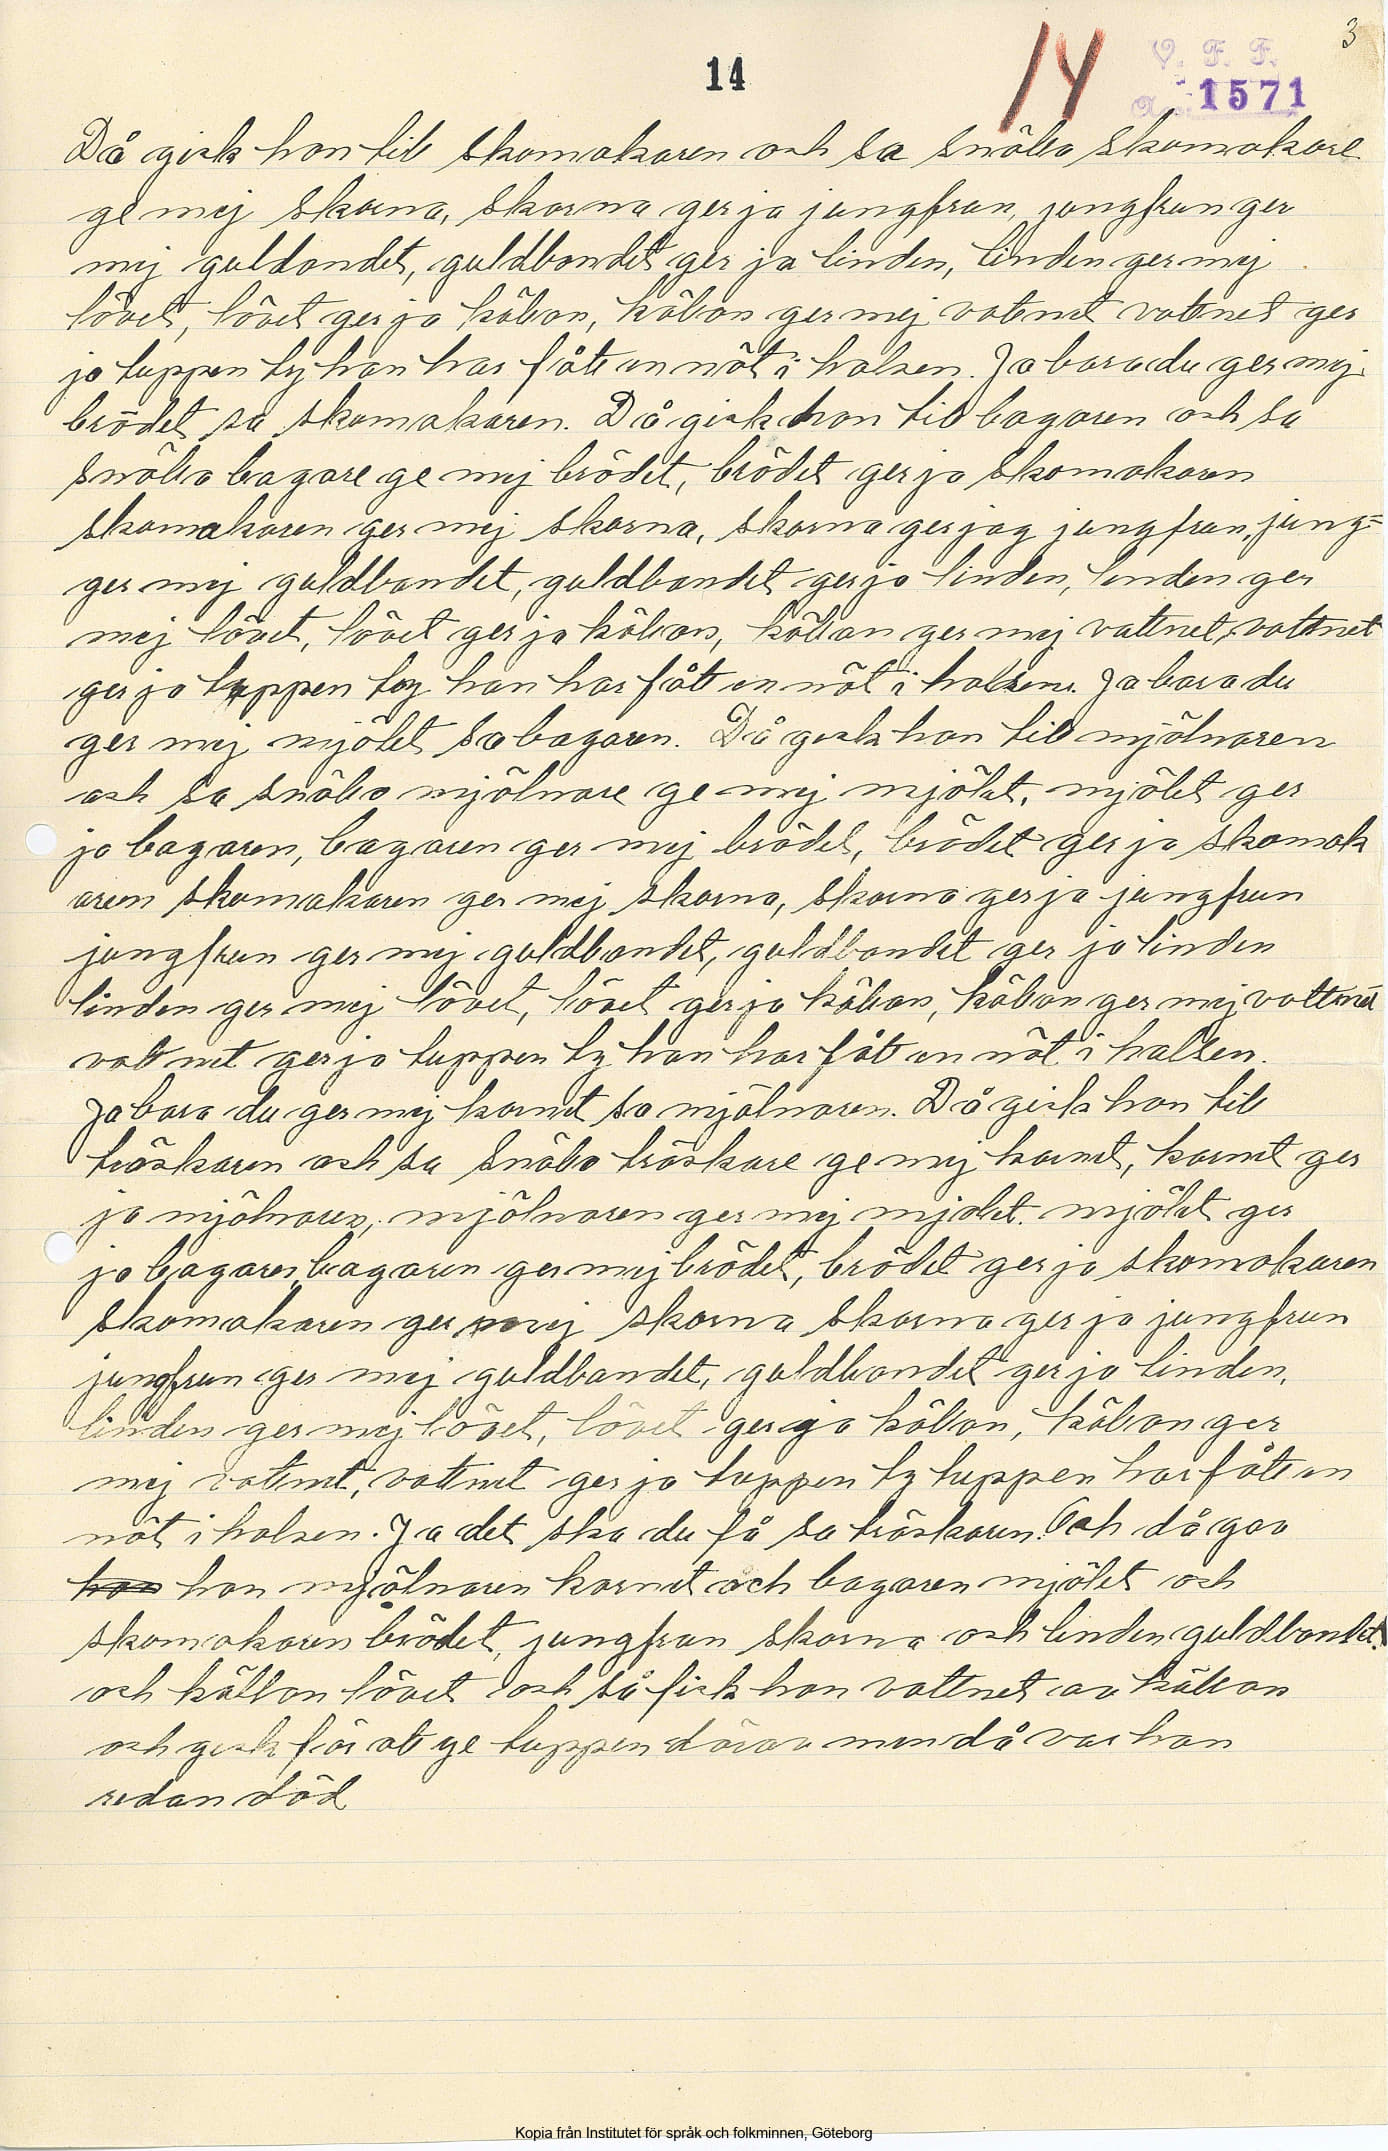 3
14
14
V. F. F.
1571
Då gick hon till skomakaren och sa snälla skomakare
ge mej skorna, skorna ger ja jungfrun, jungfrun ger
mej guldondet, guldbondet ger ja linden, linden ger mej
lövet, lövet ger ja källan, källan ger mej vattnet vattnet ger
ja tuppen ty han har fått en nöt i halsen. Ja bara du ger mej
brödet sa skomakaren. Då gick hon till bagaren och sa
snälla bagare ge mej brödet, brödet ger ja skomakaren
skomakaren ger mej skorna, skorna ger jag jungfrun, jung=
ger mej guldbandet, guldbandet ger ja linden, linden ger
mej lövet, lövet ger ja källan, källan ger mej vattnet, vattnet
ger ja tuppen ty han har fått en nöt i halsen. Ja bara du
ger mej mjölet sa bagaren. Då gick hon till mjölnaren
och sa snälla mjölnare ge mej mjölet, mjölet ger
ja bagaren, bagaren ger mej brödet, brödet ger ja skomak
aren skomakaren ger mej skorna, skorna ger ja jungfrun
jungfrun ger mej guldbandet, guldbandet ger ja linden
linden ger mej lövet, lövet ger ja källan, källan ger mej vattnet
vattnet ger ja tuppen ty han har fått en nöt i halsen.
Ja bara du ger mej kornet sa mjölnaren. Då gick hon till
tröskaren och sa snälla tröskare ge mej kornet, kornet ger
ja mjölnaren, mjölnaren ger mej mjölet. mjölet ger
ja bagaren, bagaren ger mej brödet, brödet ger ja skomakaren
skomakaren ger mej skorna skorna ger ja jungfrun
jungfrun ger mej guldbandet, guldbandet ger ja linden,
linden ger mej lövet, lövet ger ja källan, källan ger
mej vattnet, vattnet ger ja tuppen ty tuppen har fått en
nöt i halsen. Ja det ska du få sa tröskaren. Och då gav
hon mjölnaren kornet och bagaren mjölet och
skomakaren brödet, jungfrun skorna och linden guldbandet
och källan lövet och så fick hon vattnet av källan
och gick för att ge tuppen därav men då var han
redan död
Kopia från Institutet för språk och folkminnen, Göteborg